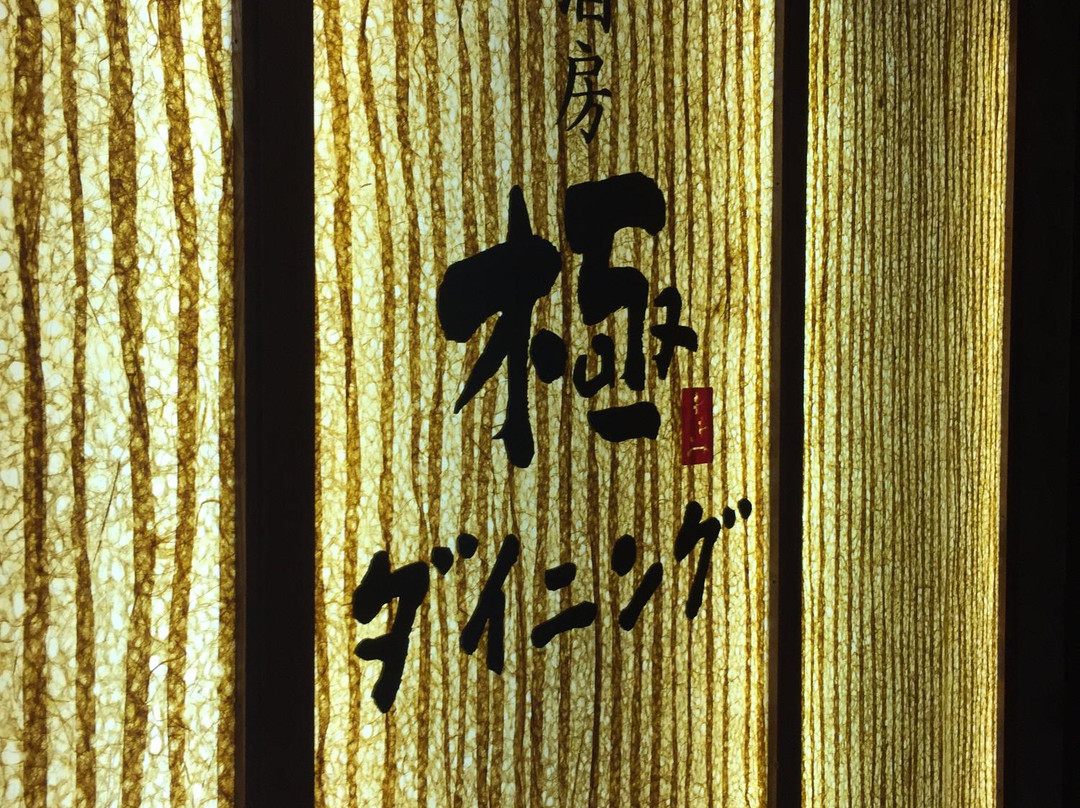 房
極
ダイニング